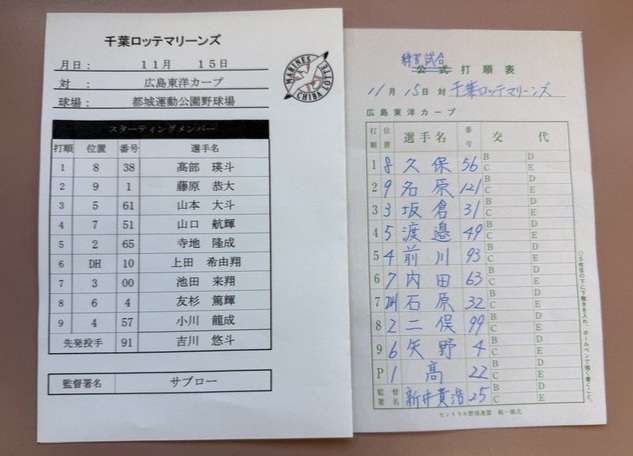 千葉ロッテマリーンズ
月日： 11月 15日
対： 広島東洋カープ
球場： 都城運動公園野球場
MARINES
CHIBA LOTTE
スターティングメンバー
打順 位置 番号 選手名
1 8 38 髙部 瑛斗
2 9 1 藤原 恭大
3 5 61 山本 大斗
4 7 51 山口 航輝
5 2 65 寺地 隆成
6 DH 10 上田 希由翔
7 3 00 池田 来翔
8 6 4 友杉 篤輝
9 4 57 小川 龍成
先発投手 91 吉川 悠斗
監督署名 サブロー
練習試合
公式打順表
11月 15日 対 千葉ロッテマリーンズ
広島東洋カープ
打順 位置 選手名 番号 交代
1 8 久保 56 B D C E
2 9 名原 121 B D C E
3 3 坂倉 31 B D C E
4 5 渡邉 49 B D C E
5 4 前川 93 B D C E
6 7 内田 63 B D C E
7 DH 石原 32 B D C E
8 2 二俣 99 B D C E
9 6 矢野 4 B D C E
P 1 髙 22 B D C E
監督署名 新井貴浩 25 B D C E